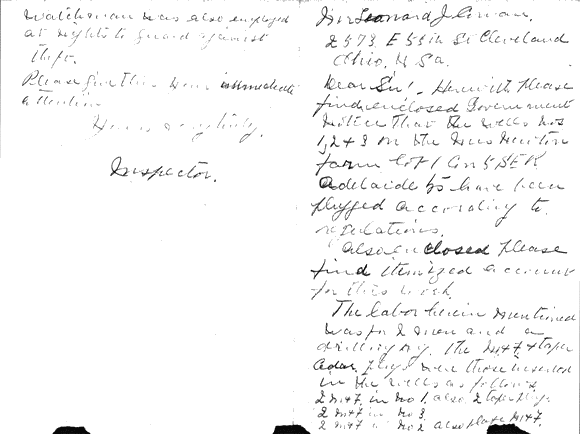 watchman was also employed
at nights to guard against
theft.
Please give this your immediate
attention
Yours very truly,
Inspector.
Mr Leonard J.
2573 E 55th St Cleveland
Ohio, U Sa.
Dear Sir! - Herewith Please
find enclosed Government
Notice That the wells Nos
1, 2 + 3 on the
farm Lot 1 Con 5 SER
Adelaide Tp have been
plugged according to
regulations.
also enclosed please
find itemized account
for this work.
The labor herein mentioned
was for 2 men and a
drilling rig. the + taper
Cedar plugs were those inserted
in the wells as follows
2 in No 1. also 2 taper plugs
2 in No 3.
2 in No 2 also